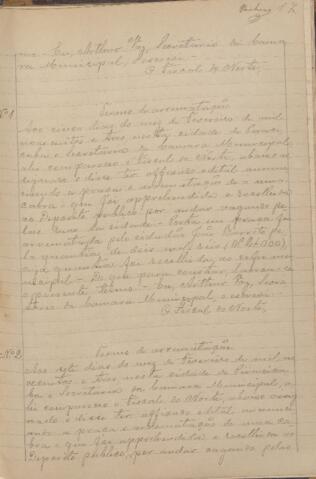 me. Eu, Arthur Vaz, Secretario da Cama
ra Municipal, escrevi.
O Fiscal do Norte,
Nº 1
Termo de arrematação
Aos cinco dias do mez de Fevereiro de mil
novecentos e tres, nesta cidade de Piraci
caba e Secretaria da Camara Municipal,
ahi compareceu o Fiscal do Norte, abaixo as
signado e disse ter affixado edital annun
ciando a praça e arrematação de uma
cabra que foi apprehendida e recolhida
ao Deposito publico por andar vagando pe
las ruas da cidade. Posta em praça foi
arrematada pelo cidadão João Barreto pe
la quantia de dois mil reis
cuja quantia foi recolhida ao cofre mu
nicipal. De que para constar, lavrou-se
o presente termo. Eu, Arthur Vaz, Secre
tario da Camara Municipal, o escrevi.
O Fiscal do Norte,
Nº 2
Termo de arrematação
Aos sete dias do mez de Fevereiro de mil no
vecentos e tres, nesta cidade de Piracica
ba e Secretaria da Camara Municipal, a
hi compareceu o Fiscal do Norte, abaixo assi
gnado e disse ter affixado edital annunci
ando a praça e arrematação de uma ca
bra que foi apprehendida e recolhida ao
Deposito publico, por andar vagando pelas